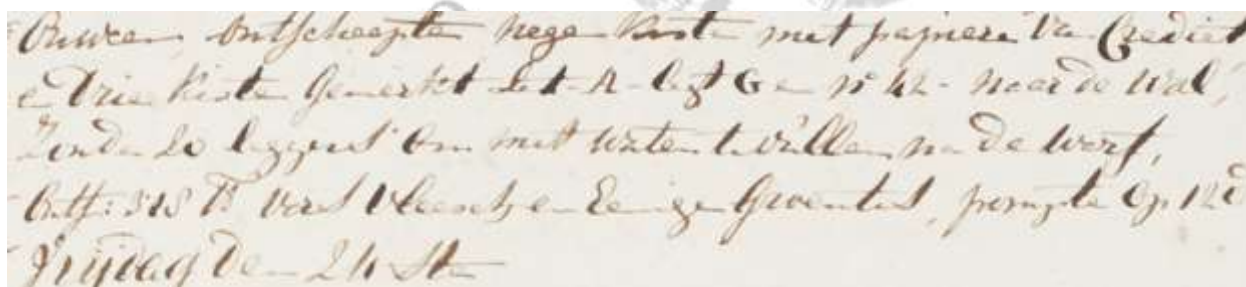 ontscheepte nege kiste met papiere van Crediet
e Drie kiste Gemerkt Let A - en No 42 - naar de Wal,
Zonde 20 leggers om met water te vulle na de werf,
Ontf: 318 lb vers Vleesch en Eenige Groentes, pompte op 12 d
Vrijdag den 24 ste